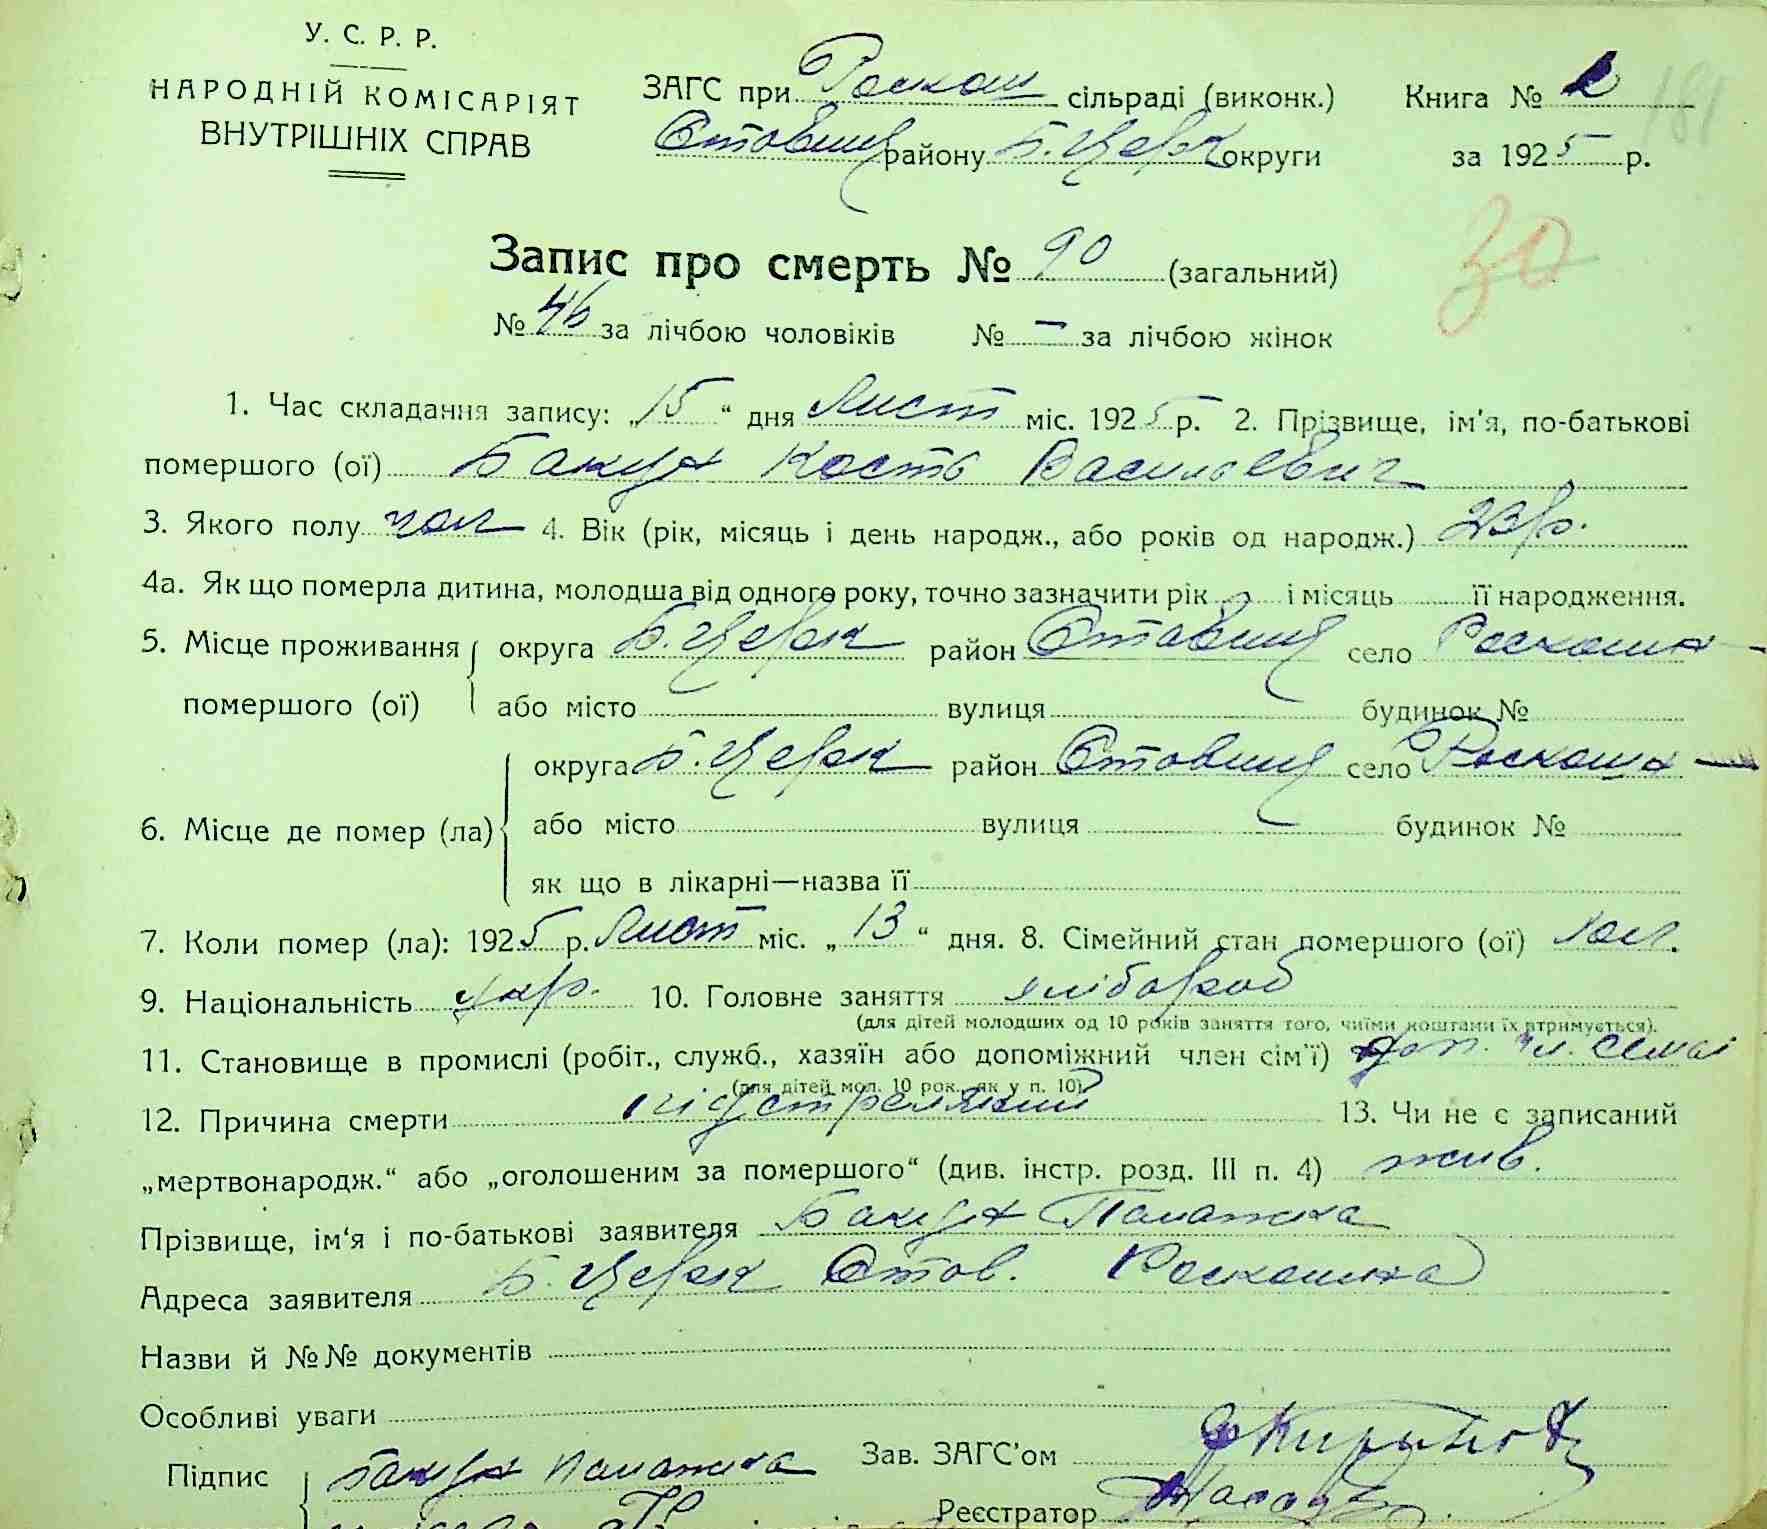 У. С. Р. Р.
НАРОДНІЙ КОМІСАРІЯТ
ВНУТРІШНІХ СПРАВ
ЗАГС при Роскош сільраді (виконк.)
Ставищ району Б. Церк округи
Книга №
за 1925 р.
181
30
Запис про смерть № 90 (загальний)
№ 46 за лічбою чоловіків № – за лічбою жінок
1. Час складання запису: „15“ дня Лист міс. 1925 р. 2. Прізвище, ім'я, по-батькові
помершого (ої) Бакун Кость Васильевич
3. Якого полу чол 4. Вік (рік, місяць і день народж., або років од народж.) 23 р.
4а. Як що померла дитина, молодша від одного року, точно зазначити рік і місяць її народження.
5. Місце проживання помершого (ої) округа Б. Церк район Ставищ село Роскошна
або місто вулиця будинок №
6. Місце де помер (ла) округа Б. Церк район Ставищ село Роскошна
або місто вулиця будинок №
як що в лікарні—назва її
7. Коли помер (ла): 1925 р. Лист міс. „13“ дня. 8. Сімейний стан помершого (ої)
9. Національність укр. 10. Головне заняття хлібороб
(для дітей молодших од 10 років заняття того, чиїми коштами їх втримується).
11. Становище в промислі (робіт., служб., хазяїн або допоміжний член сім'ї) доп. чл. семї
(для дітей мол. 10 рок., як у п. 10)
12. Причина смерти підстреляний 13. Чи не є записаний
„мертвонародж.“ або „оголошеним за помершого“ (див. інстр. розд. III п. 4) жив.
Прізвище, ім'я і по-батькові заявителя Бакун Палажка
Адреса заявителя Б. Церк Став. Роскошна
Назви й №№ документів
Особливі уваги
Підпис Бакун Палажка
Зав. ЗАГС'ом
Реєстратор